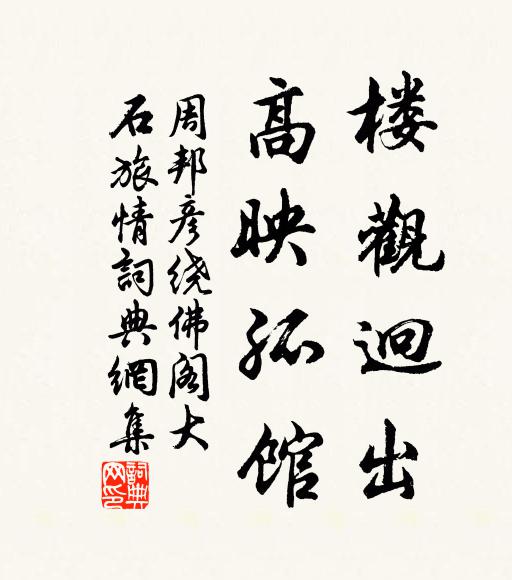 楼觀迥出
高映孤馆
周邦彦绕佛阁大
石旅情詞典網集
詞典网印